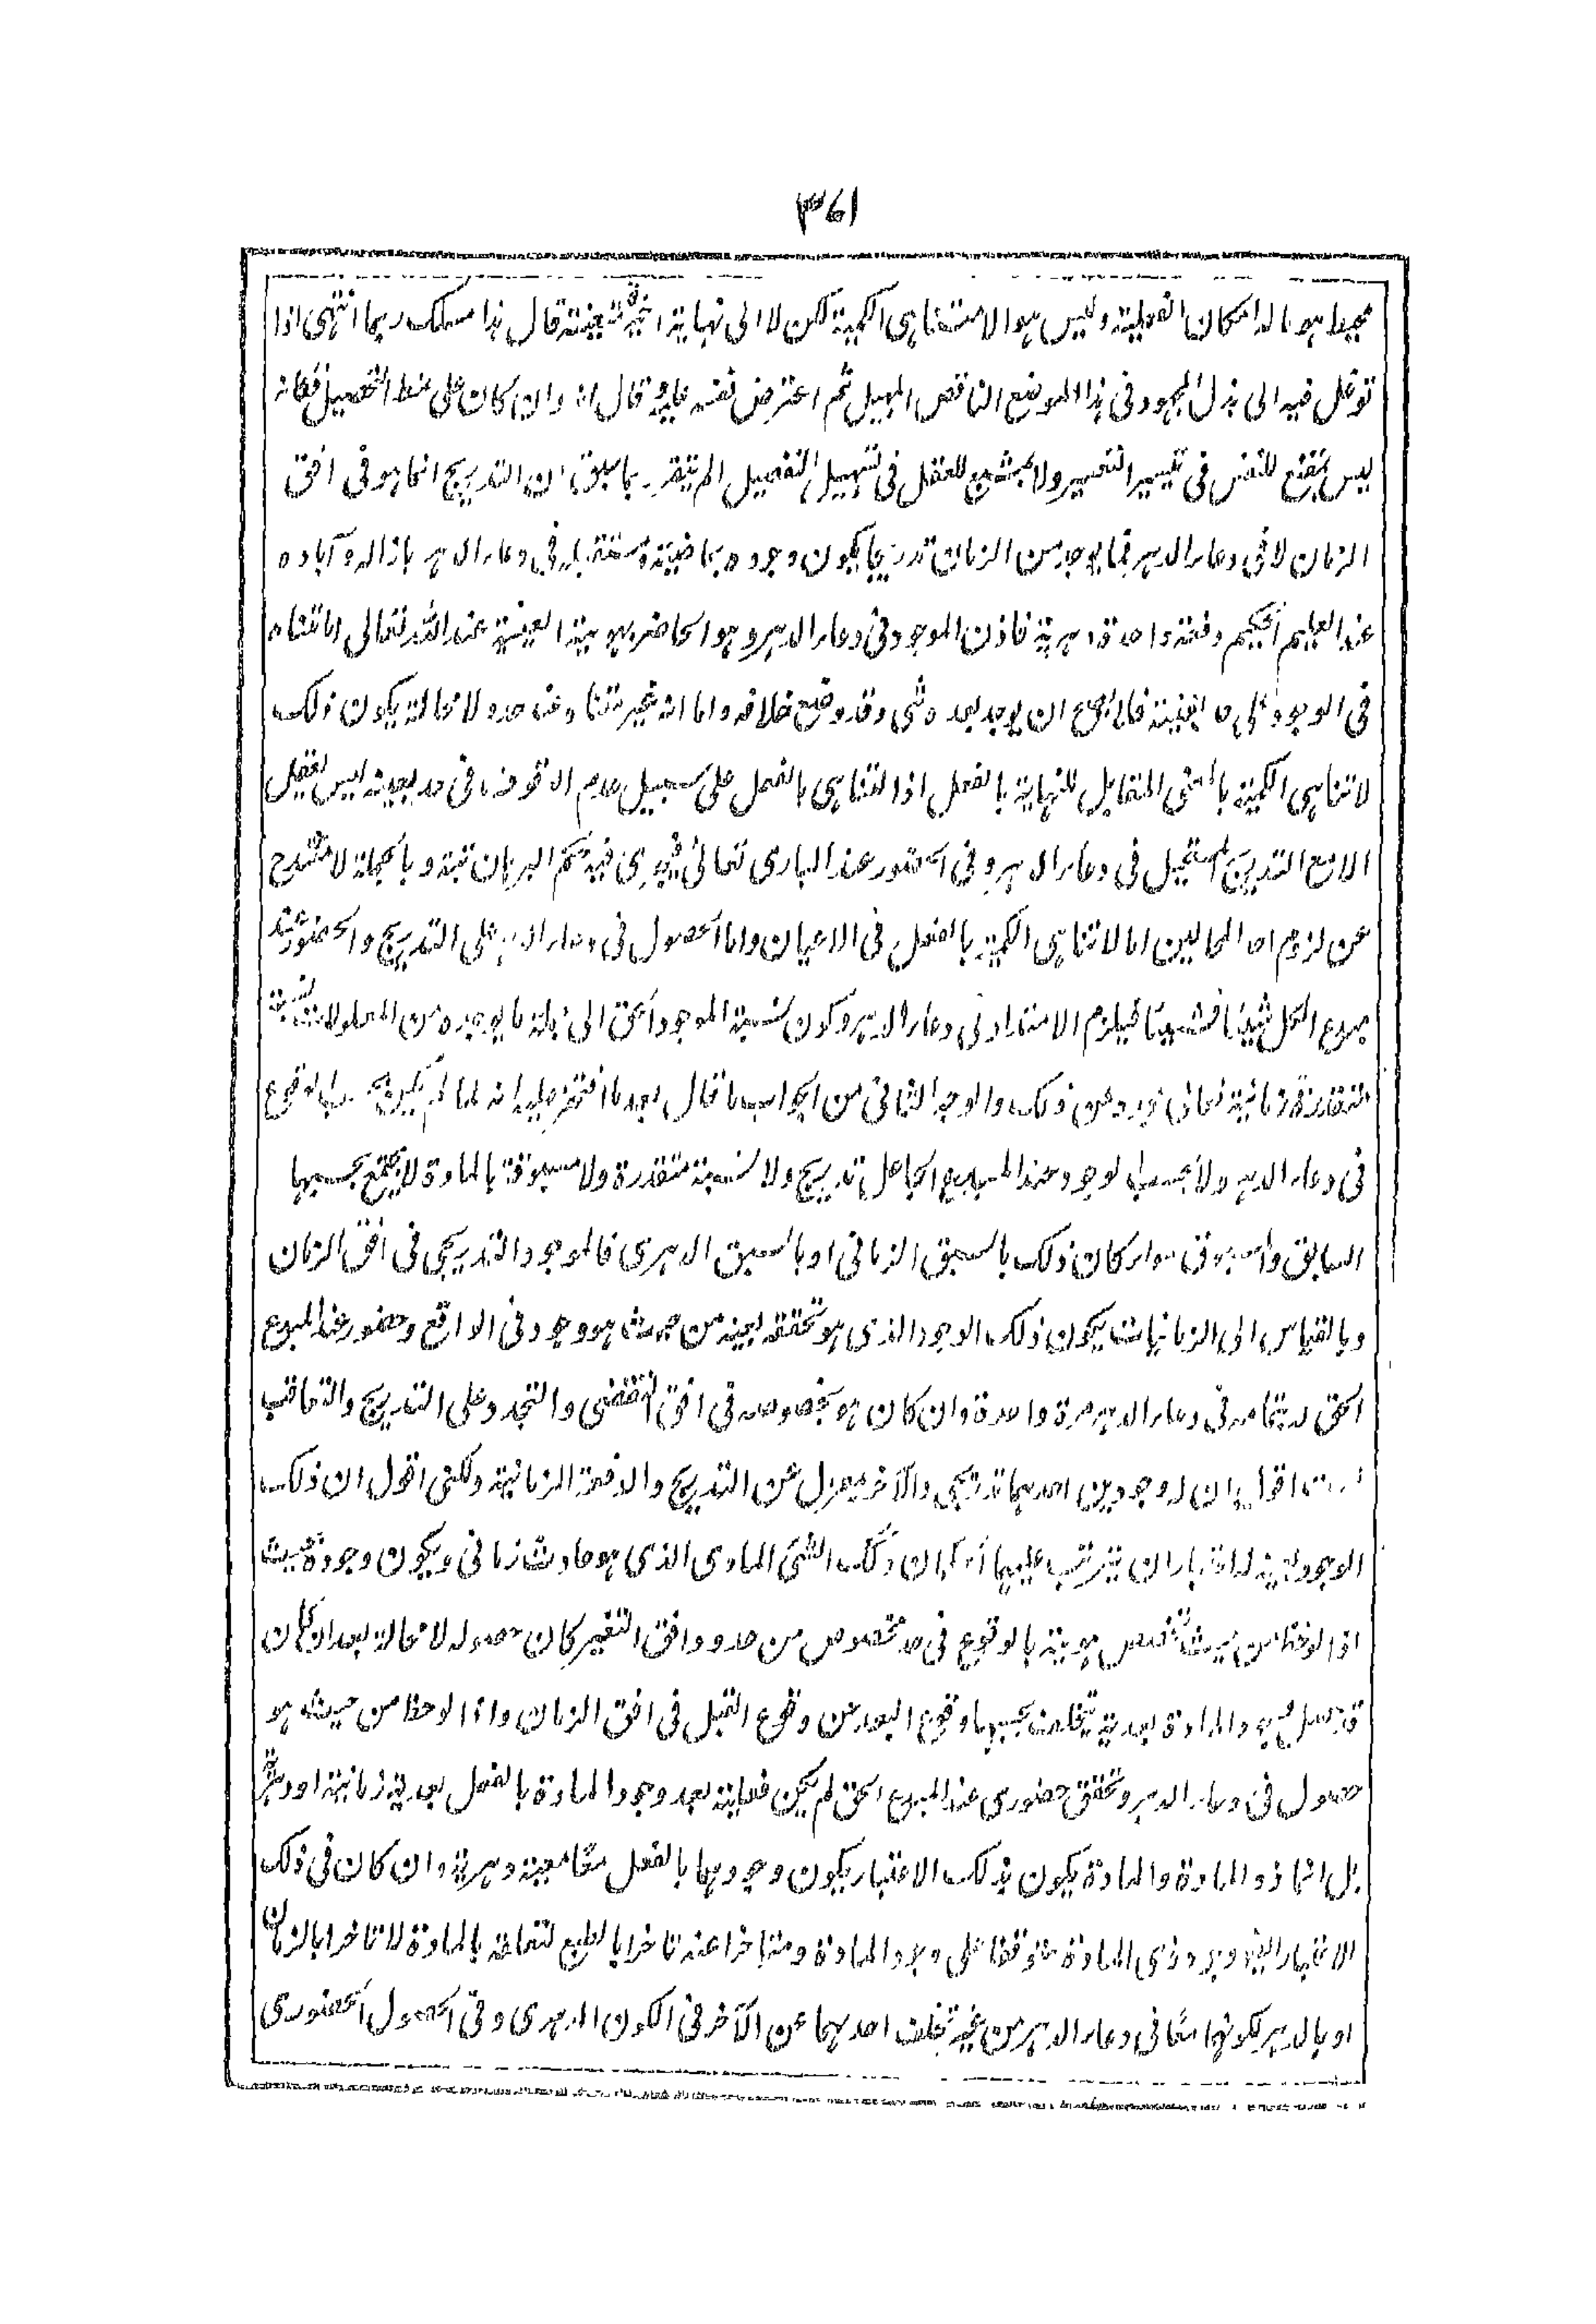 ٣٦١
محيط هو ما له امكان الفعلية وليس هو الا متناهى الكمية لكن لا الى نهاية اخيرة متعينة قال هذا مسلك ربما انتهى اذا
توغل فيه الى بذل المجهود فى هذا الموضع الناقص المهيل ثم اعترض نفسه عليه و قال انه وان كان على نمط التحصيل فكانه
ليس بمقنع للنفس فى تيسير العسير ولا بمشبع للعقل فى تسهيل التفصيل الم يتقرر بما سبق ان التدريج انما هو فى افق
الزمان لا فى وعاء الدهر فما يوجد من الزمان تدريجا يكون وجوده بماضيه ومستقبله فى وعاء الدهر بازاله وآباده
عند العليم الحكيم دفعة واحدة دهرية فاذن الموجود فى وعاء الدهر وهو الحاضر بهويته العينية عند الله تعالى اما متناه
فى الوجود على فما يصح ان يوجد بعده شى وقد وضع خلافه واما انه غير متناه عند حد ولا محالة يكون ذلك
لا تناهى الكمية بالمعنى المقابل للنهاية بالفعل اذ اللاتناهى بالفعل على سبيل عدم الوقوف فى حد بعينه ليس يعقل
الا مع التدريج المستحيل فى وعاء الدهر وفى الحضور عند البارى تعالى فيجرى فيه حكم البرهان بتة وبالجملة لا منتدح
عن لزوم احد المحالين اما لا تناهى الكمية بالفعل فى الاعيان واما الحصول فى وعاء الدهر على التدريج والحضور عند
مبدع الكل شيئا فشيئا فيلزم الامتداد فى وعاء الدهر وكون نسبة الموجود الحق الى جملة ما يوجده من المعلولات نسبة
متقدرة زمانية تعالى عن ذلك والوجه الثانى من الجواب ما قال بعد ما انه لما لم يكن بحسب الوقوع
فى وعاء الدهر ولا بحسب الوجود عند المبدع الجاعل تدريج ولا نسبة متقدرة ولا مسبوقة بالمادة لا يجتمع بحسبها
السابق والمسبوق سواء كان ذلك بالسبق الزمانى او بالسبق الدهرى فالموجود التدريجى فى افق الزمان
وبالقياس الى الزمانيات يكون ذلك الوجود الذى هو تحققه بعينه من حيث هو وجود فى الواقع وحضور عند المبدع
الحق له بتمامه فى وعاء الدهر مرة واحدة وان كان هو بخصوصه فى افق التقضى والتجدد على التدريج والتعاقب
لست اقول ان له وجودين احدهما تدريجى والآخر بمعزل عن التدريج والدفعة الزمانية ولكنى اقول ان ذلك
الوجود بعينه له اعتباران يترتب عليهما كان ذلك الشى المادى الذى هو حادث زمانى ويكون وجوده بحيث
اذا لوحظ من حيث تخصص هويته بالوقوع فى حد مخصوص من حدود افق التغير كان حصوله لا محالة بعد ان كان
قد حصل وجود المادة بعدية يتخلف بحسبها وقوع البعد عن وقوع القبل فى افق الزمان واذا لوحظ من حيث هو
حصول فى وعاء الدهر وتحقق حضورى عند المبدع الحق لم يكن فعليته بعد وجود المادة بالفعل بعدية زمانية او دهرية
بل انما ذو المادة والمادة يكون بذلك الاعتبار يكون وجودهما بالفعل معا معية دهرية وان كان فى ذلك
الاعتبار ايضا وجود ذى المادة متوقفا على وجود المادة ومتاخرا عنه تاخرا بالطبع لتعلقه بالمادة لا تاخرا بالزمان
او بالدهر لكونهما معا فى وعاء الدهر من غير تخلف احدهما عن الآخر فى الكون الدهرى وفى الحصول الحضورى